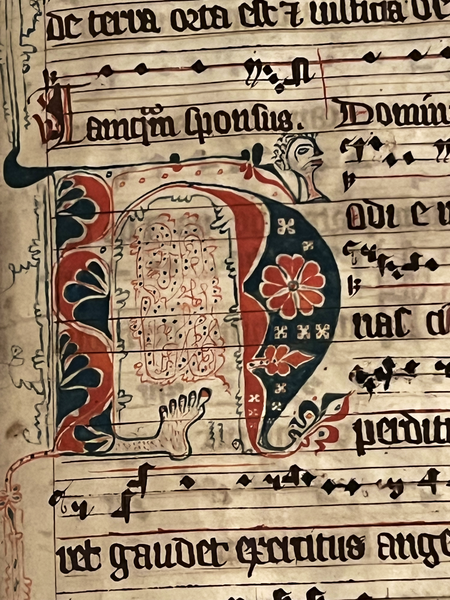 de terra orta est ⁊ iusticia de
Tamq̄m sponsus. Domin
Hodi e n
nas ci
perdit
ret gaudet exercitus ange